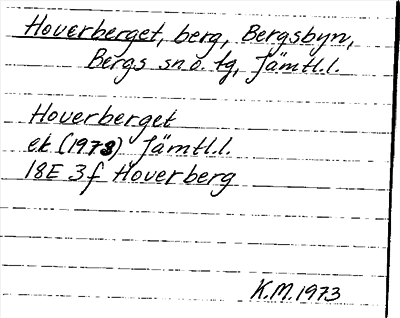 Hoverberget, berg, Bergsbyn,
Bergs sn o. tg, Jämtl.l.
Hoverberget
ek (1973) Jämtl.l.
18E 3f Hoverberg
K.M.1973